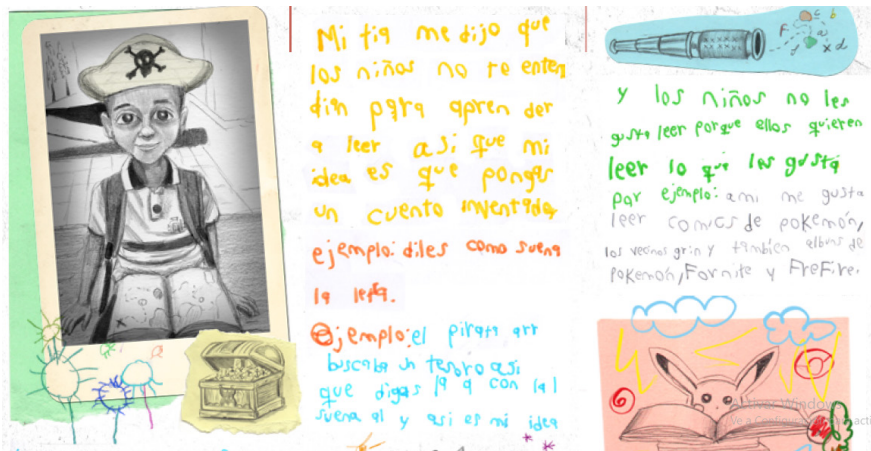 Mi tia me dijo que
los niños no te enten
dian para apren der
a leer asi que mi
idea es que pongas
un cuento inventado,
ejemplo: diles como suena
la letra.
Ejemplo: el pirata arr
buscaba un tesoro asi
que digas la a con la l
suena al y asi es mi idea
y los niños no les
gusta leer porque ellos quieren
leer lo que les gusta
por ejemplo: ami me gusta
leer comics de pokemón,
los vecinos grin y tambien albums de
Pokemón, Fornite y FreFire.
Activar Windows